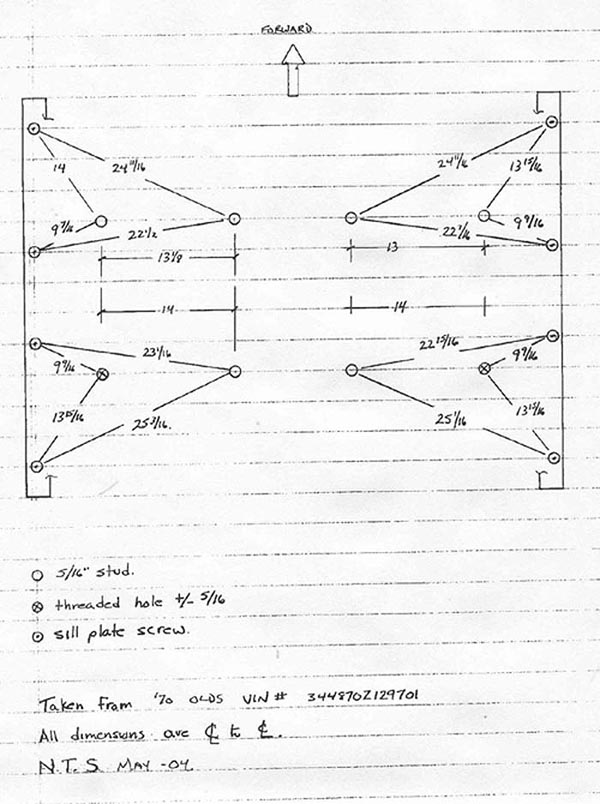 FORWARD
14
24 11/16
24 11/16
13 15/16
9 7/16
22 1/2
22 7/16
9 9/16
13 1/8
13
14
14
23 1/16
22 15/16
9 9/16
9 9/16
13 15/16
25 3/16.
25 1/16
13 15/16
5/16" stud.
threaded hole +/- 5/16
sill plate screw.
Taken from '70 OLDS VIN# 344870Z129701
All dimensions are ℄ to ℄.
N.T.S. MAY -04